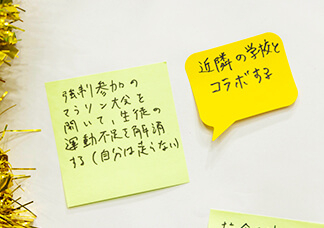 強制参加の
マラソン大会を
開いて、生徒の
運動不足を解消
する(自分は走らない)
近隣の学校と
コラボする